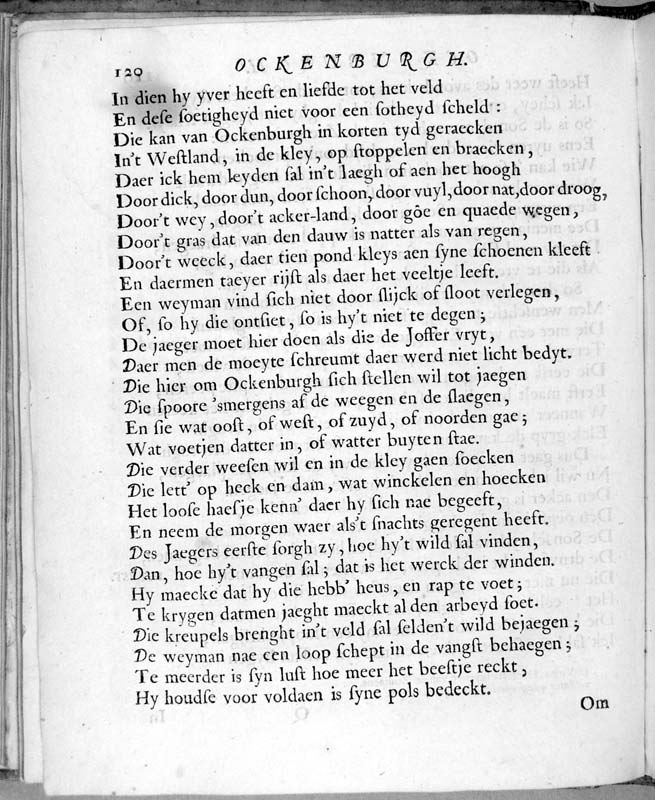 120 OCKENBURGH.
In dien hy yver heeft en liefde tot het veld
En dese soetigheyd niet voor een sotheyd scheld:
Die kan van Ockenburgh in korten tyd geraecken
In't Westland, in de kley, op stoppelen en braecken,
Daer ick hem leyden sal in't laegh of aen het hoogh
Door dick, door dun, door schoon, door vuyl, door nat, door droog,
Door't wey, door't acker-land, door gôe en quaede wegen,
Door't gras dat van den dauw is natter als van regen,
Door't weeck, daer tien pond kleys aen syne schoenen kleeft
En daermen taeyer rijst als daer het veeltje leeft.
Een weyman vind sich niet door slijck of sloot verlegen,
Of, so hy die ontsiet, so is hy't niet te degen;
De jaeger moet hier doen als die de Joffer vryt,
Daer men de moeyte schreumt daer werd niet licht bedyt.
Die hier om Ockenburgh sich stellen wil tot jaegen
Die spoore 'smergens af de weegen en de slaegen,
En sie wat oost, of west, of zuyd, of noorden gae;
Wat voetjen datter in, of watter buyten stae.
Die verder weesen wil en in de kley gaen soecken
Die lett' op heck en dam, wat winckelen en hoecken
Het loose haesje kenn' daer hy sich nae begeeft,
En neem de morgen waer als't snachts geregent heeft.
Des Jaegers eerste sorgh zy, hoe hy't wild sal vinden,
Dan, hoe hy't vangen sal; dat is het werck der winden.
Hy maecke dat hy die hebb' heus, en rap te voet;
Te krygen datmen jaeght maeckt al den arbeyd soet.
Die kreupels brenght in't veld sal selden't wild bejaegen;
De weyman nae een loop schept in de vangst behaegen;
Te meerder is syn lust hoe meer het beestje reckt,
Hy houdse voor voldaen is syne pols bedeckt.
Om